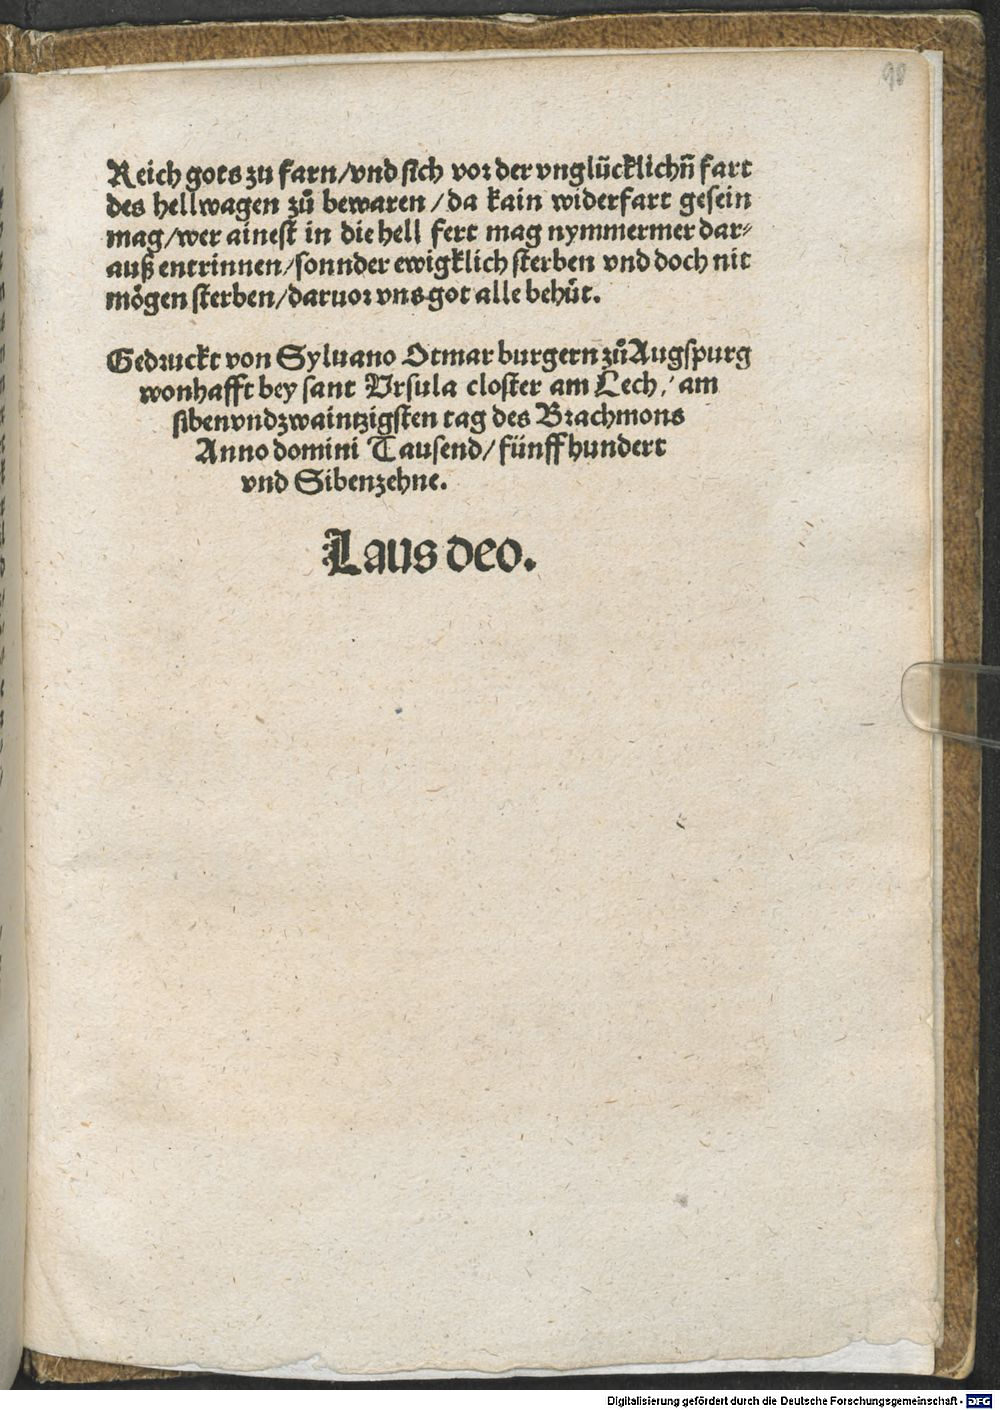 90
Reich gots zu farn/vnd sich vor der vnglücklichñ fart
des hellwagen zů bewaren/da kain widerfart gesein
mag/wer ainest in die hell fert mag nymmermer dar⸗
auß entrinnen/sonnder ewigklich sterben vnd doch nit
mögen sterben/daruor vns got alle behůt.
Gedruckt von Syluano Otmar burgern zů Augspurg
wonhafft bey sant Vrsula closter am Lech/am
sibenvndzwaintzigsten tag des Brachmons
Anno domini Tausend/fünff hundert
vnd Sibenzehne.
Laus deo.
Digitalisierung gefördert durch die Deutsche Forschungsgemeinschaft - DFG